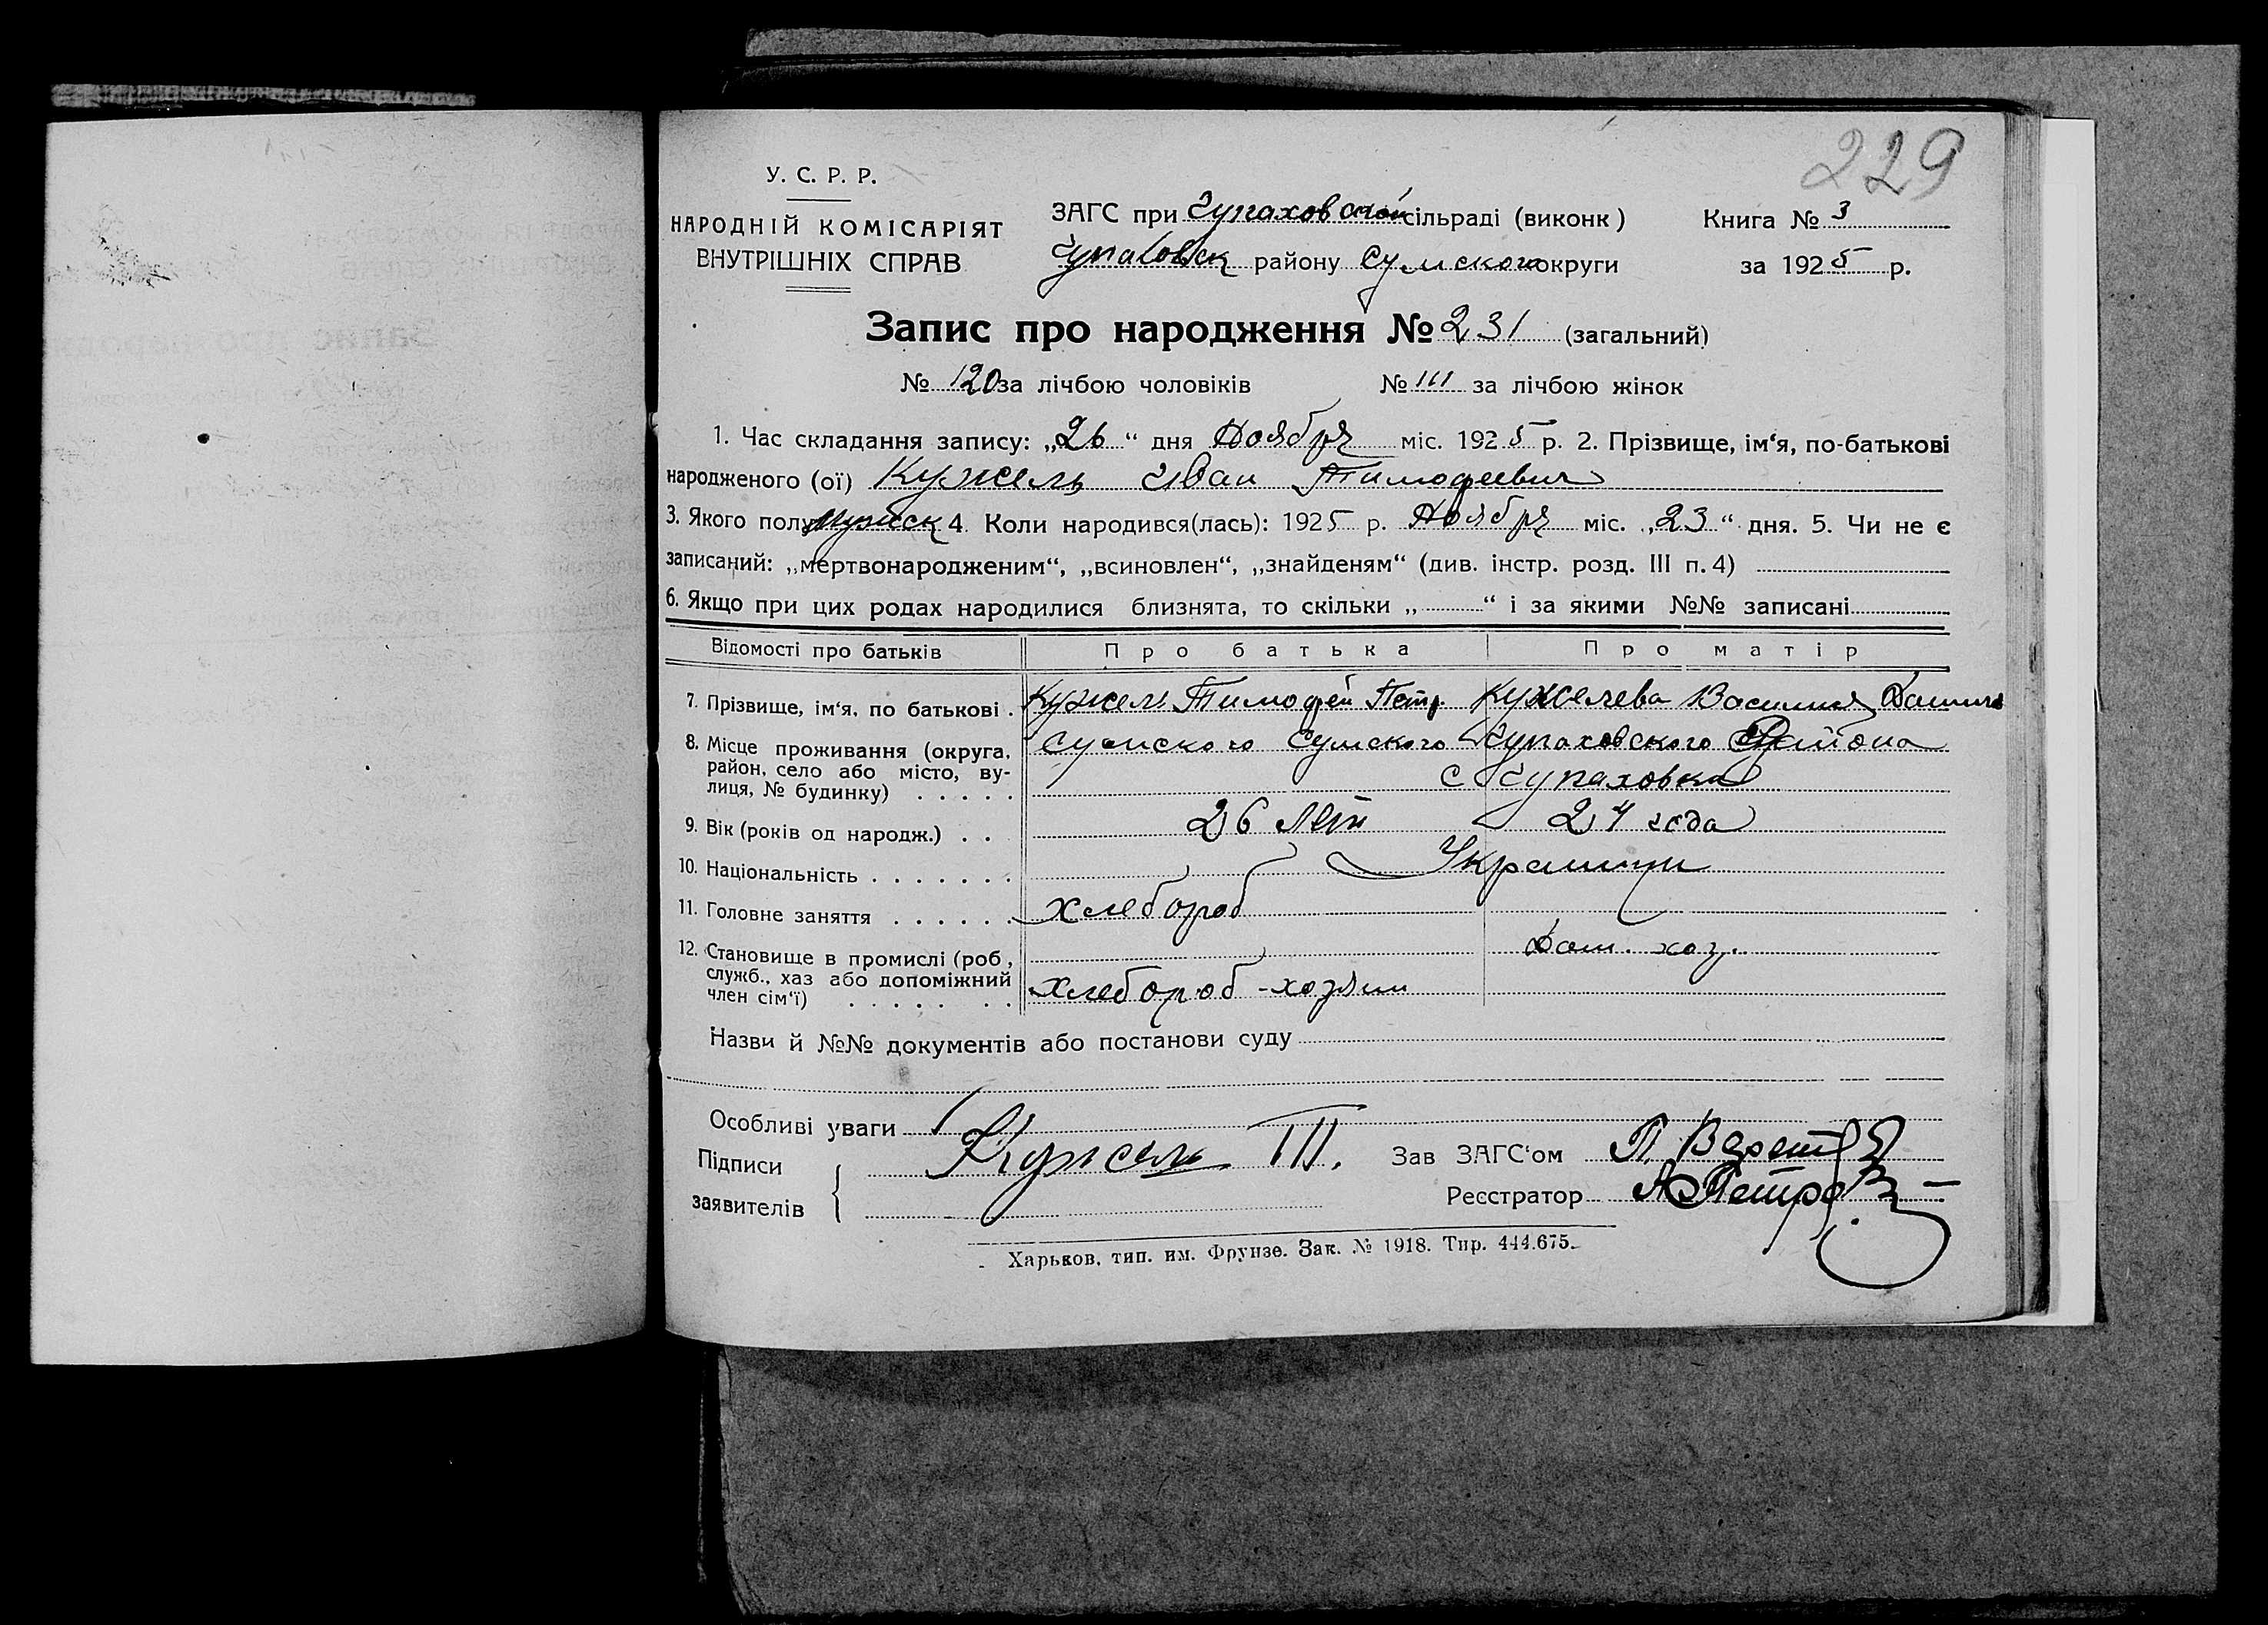 229
У. С. Р. Р.
НАРОДНІЙ КОМІСАРІЯТ
ВНУТРІШНІХ СПРАВ
ЗАГС при Чупаховской сільраді (виконк) Книга № 3
Чупаховск району Сумского округи за 1925 р.
Запис про народження № 231 (загальний)
№ 120 за лічбою чоловіків № 111 за лічбою жінок
1. Час складання запису: „26“ дня Ноября міс. 1925 р. 2. Прізвище, ім‘я, по-батькові
народженого (ої) Кужель Иван Тимофеевич
3. Якого полу мужск 4. Коли народився(лась): 1925 р. Ноября міс. „23“ дня. 5. Чи не є
записаний: „мертвонародженим“, „всиновлен“, „знайденям“ (див. інстр. розд. III п. 4)
6. Якщо при цих родах народилися близнята, то скільки „ “ і за якими №№ записані
Відомості про батьків Про батька Про матір
7. Прізвище, ім‘я, по батькові . Кужель Тимофей Петр. Кужелева Василиса
8. Місце проживання (округа, район, село або місто, вулиця, № будинку) . . . . . Сумского Сумского Чупаховского Района
с Чупаховка
9. Вік (років од народж.) . . 26 лет 24 года
10. Національність . . . . . . . Украинцы
11. Головне заняття . . . . . . хлебороб
Дом. хоз.
12. Становище в промислі (роб, служб., хаз або допоміжний член сім‘ї) . . . . . . . хлебороб-хозяин
Назви й №№ документів або постанови суду
Особливі уваги
Підписи заявителів { Кужель Т. Зав ЗАГС‘ом П.
Реєстратор А Петров
Харьков, тип. им. Фрунзе. Зак. № 1918. Тир. 444.675.